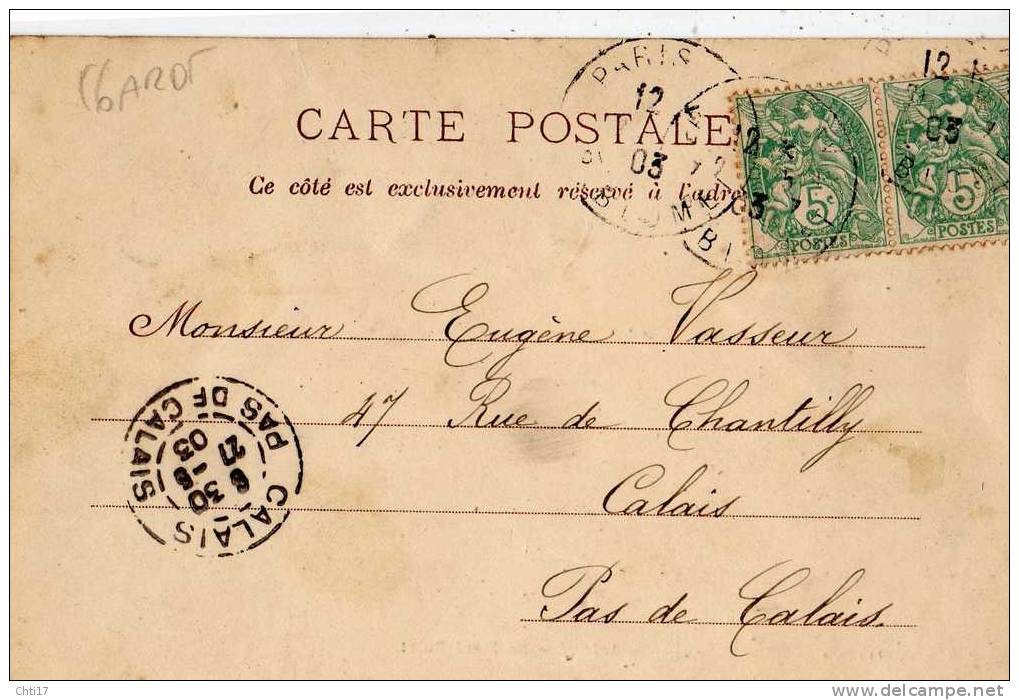 CARTE POSTALE
Ce côté est exclusivement réservé à l'adre
PARIS
12
03
12
03
BI
12
03
5c
POSTES
5c
POSTES
Monsieur Eugène Vasseur
47 Rue de Chantilly
Calais
Pas de Calais
CALAIS
PAS DE CALAIS
6 30
27
03
Chti17
www.delcampe.net